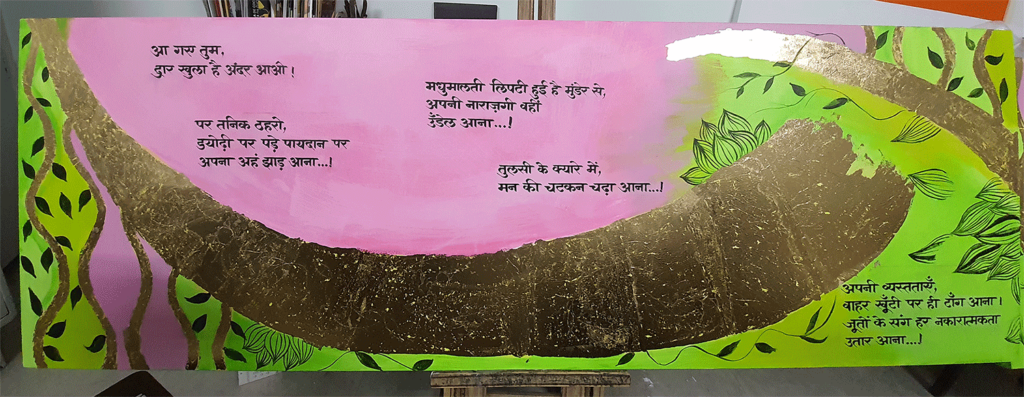 आ गए तुम,
द्वार खुला है अंदर आओ !
पर तनिक ठहरो,
ड्योढ़ी पर पड़े पायदान पर
अपना अहं झाड़ आना...!
मधुमालती लिपटी हुई है मुंडेर से,
अपनी नाराज़गी वहीं
उँडेल आना...!
तुलसी के क्यारे में,
मन की चटकन चढ़ा आना...!
अपनी व्यस्तताएँ,
बाहर खूँटी पर ही टाँग आना।
जूतों के संग हर नकारात्मकता
उतार आना...!